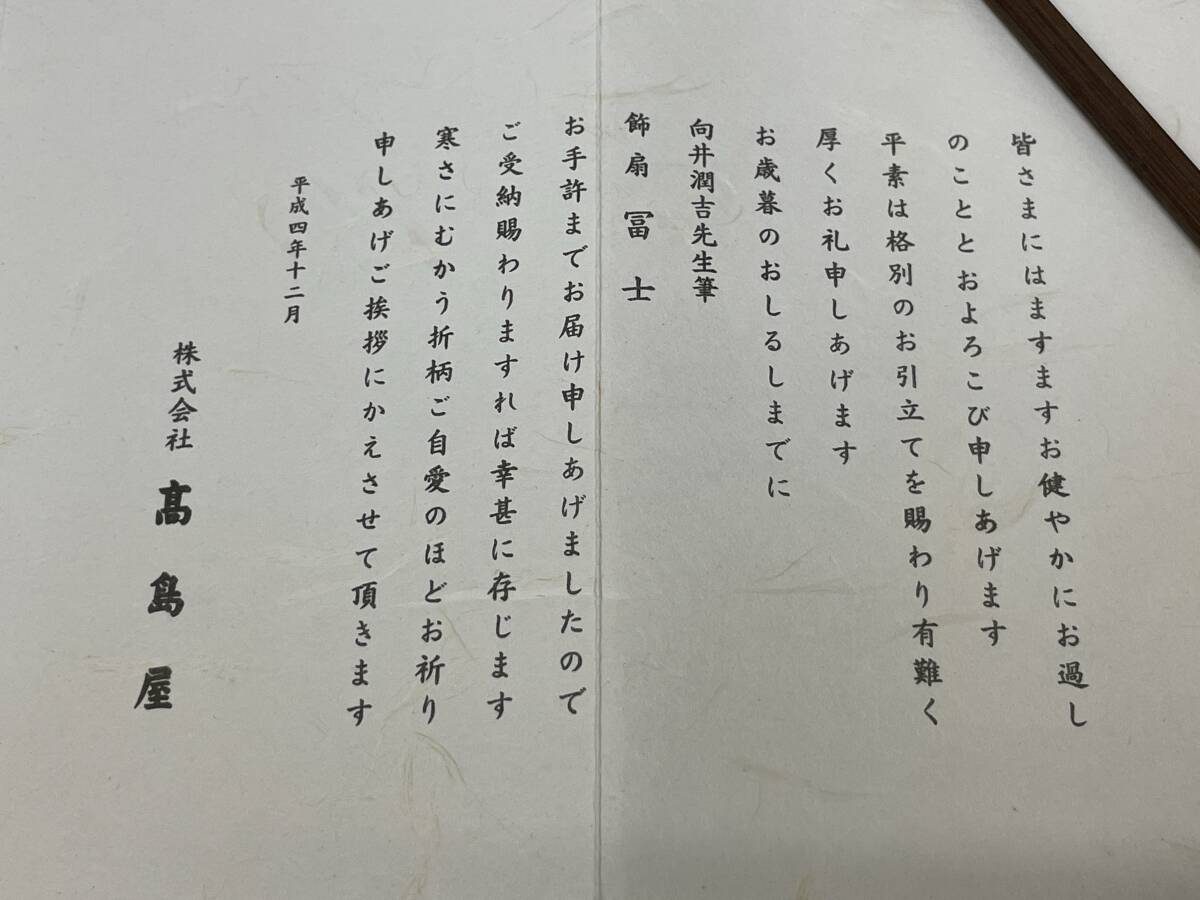 皆さまにはますますお健やかにお過し
のこととおよろこび申しあげます
平素は格別のお引立てを賜わり有難く
厚くお礼申しあげます
お歳暮のおしるしまでに
向井潤吉先生筆
飾扇 冨士
お手許までお届け申しあげましたので
ご受納賜わりますれば幸甚に存じます
寒さにむかう折柄ご自愛のほどお祈り
申しあげご挨拶にかえさせて頂きます
平成四年十二月
株式会社 髙島屋